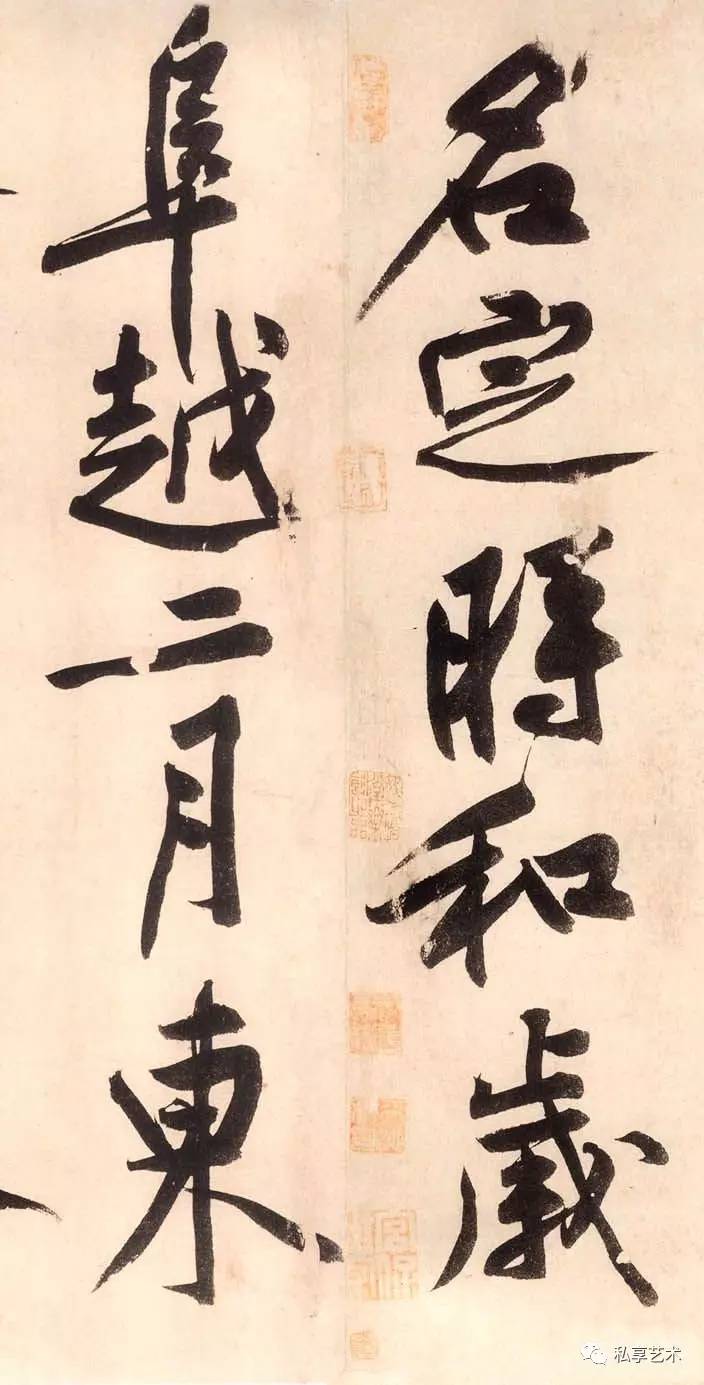 名定時和歲
阜越二月東
私享艺术